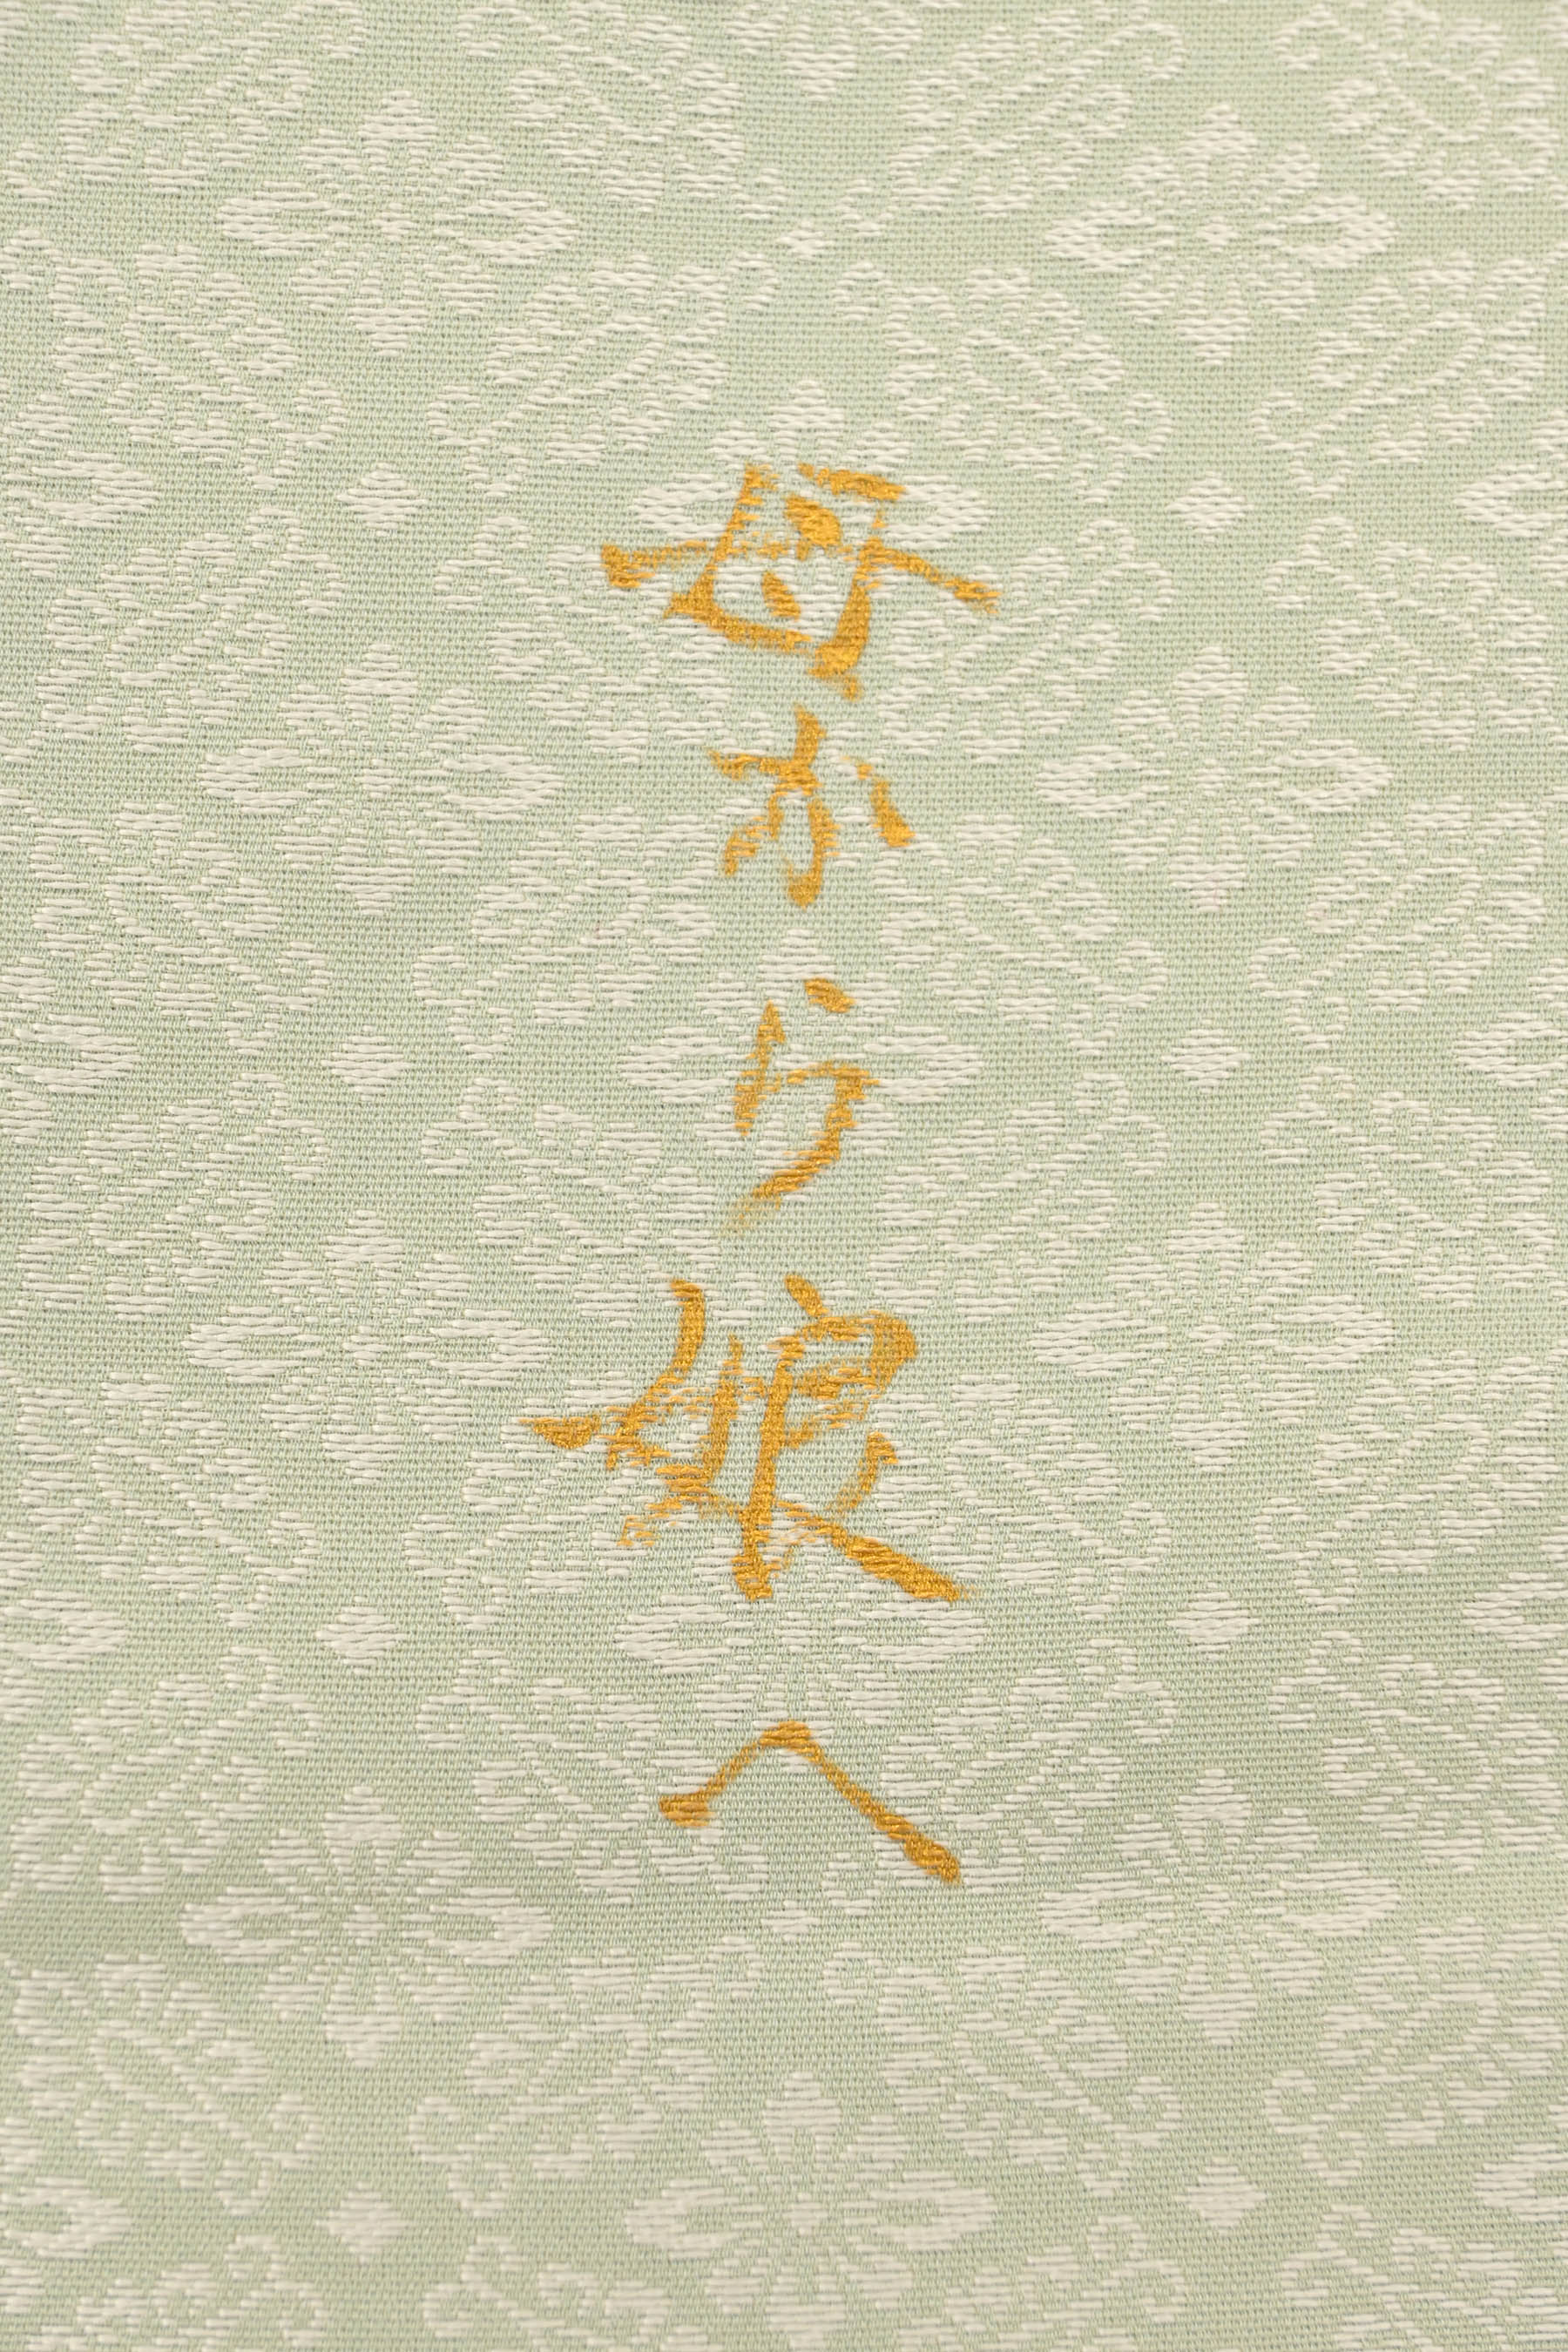 母から娘へ